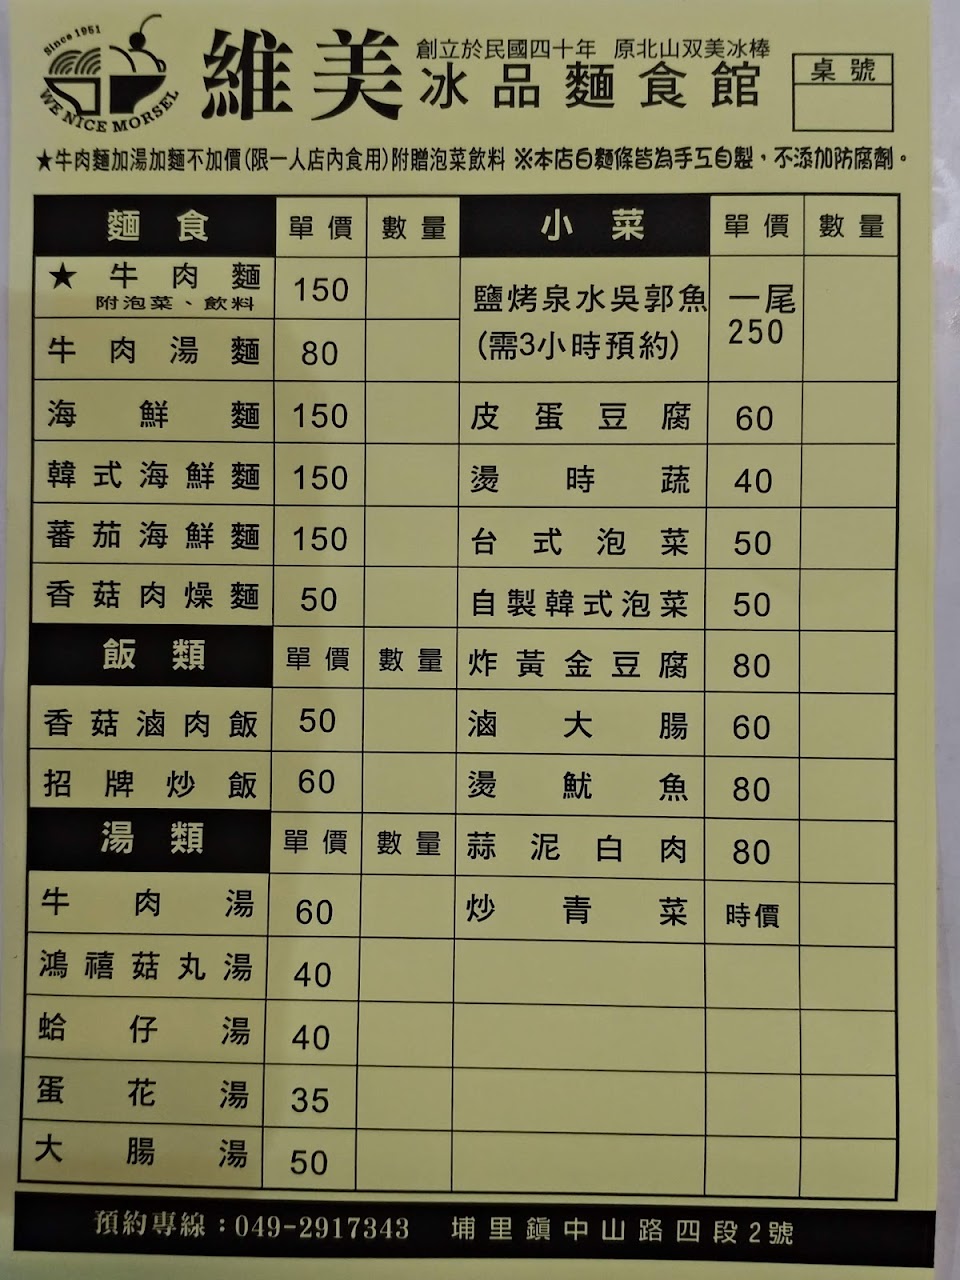 Since 1951
WE NICE MORSEL
維美
創立於民國四十年 原北山双美冰棒
冰品麵食館
桌號
★牛肉麵加湯加麵不加價(限一人店內食用)附贈泡菜飲料 ※本店白麵條皆為手工自製，不添加防腐劑。
麵食 單價 數量
★牛肉麵 150
附泡菜、飲料
牛肉湯麵 80
海鮮麵 150
韓式海鮮麵 150
蕃茄海鮮麵 150
香菇肉燥麵 50
飯類 單價 數量
香菇滷肉飯 50
招牌炒飯 60
湯類 單價 數量
牛肉湯 60
鴻禧菇丸湯 40
蛤仔湯 40
蛋花湯 35
大腸湯 50
小菜 單價 數量
鹽烤泉水吳郭魚 一尾
(需3小時預約) 250
皮蛋豆腐 60
燙時蔬 40
台式泡菜 50
自製韓式泡菜 50
炸黃金豆腐 80
滷大腸 60
燙魷魚 80
蒜泥白肉 80
炒青菜 時價
預約專線：049-2917343 埔里鎮中山路四段2號